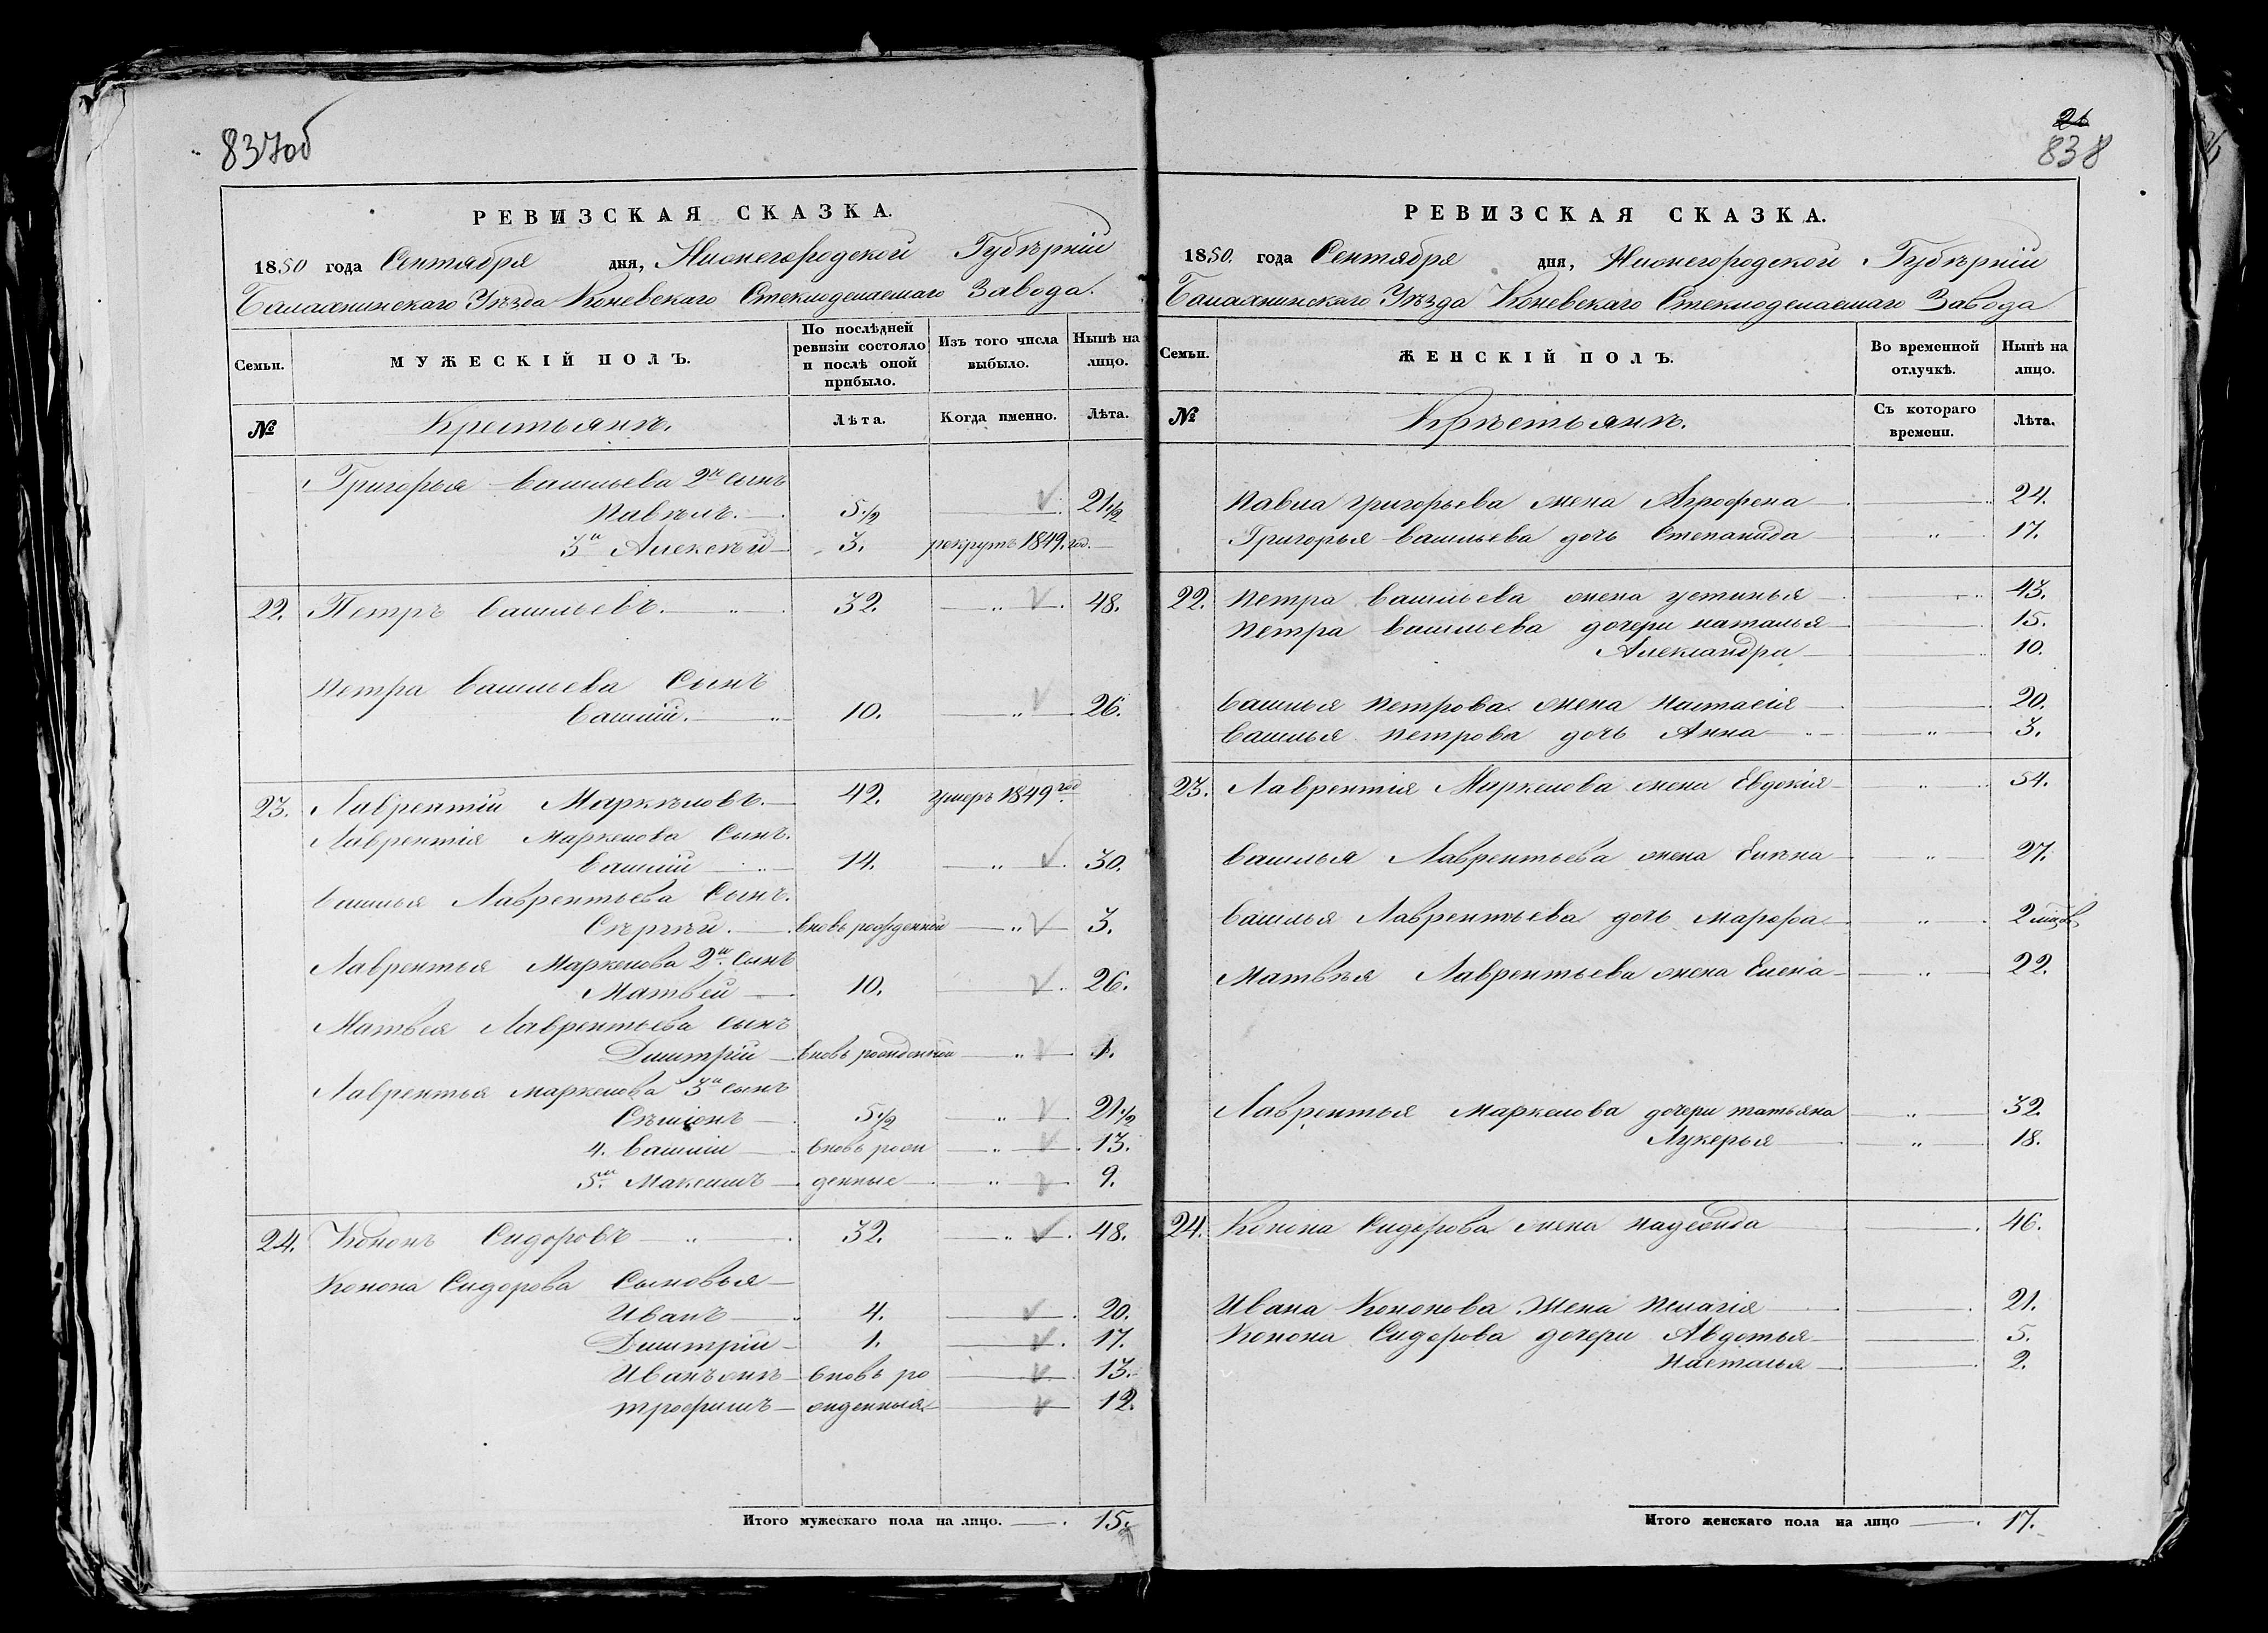 837об
РЕВИЗСКАЯ СКАЗКА.
1850 года Сентября дня, Нижегородской Губѣрніи
Балахнинскаго Уѣзда Коневскаго Стеклоделаемаго Завода.
Семьи.
МУЖЕСКІЙ ПОЛЪ.
По послѣдней ревизіи состояло и послѣ оной прибыло.
Изъ того числа выбыло.
Нынѣ на лицо.
№
Крестьянъ.
Лѣта.
Когда именно.
Лѣта.
Григорья Васильева 2й сынъ
Павѣлъ. 5 1/2 21 1/2
3й Алексѣй 3. рекрутъ 1849. год.
22. Петръ Васильевъ. 32. 48.
Петра Васильева Сынъ
Василій. 10. 26.
23. Лаврентій Маркѣловъ. 42. умеръ 1849 год
Лаврентія Маркелова Сынъ.
Василій 14. 30.
Василья Лаврентьева Сынъ.
Сѣргѣй. вновь рожденной 3.
Лаврентья Маркелова 2й Сынъ
Матвей 10. 26.
Матвея Лаврентьева сынъ
Дмитрій вновь рожденной 1.
Лаврентья маркелова 3й сынъ
Сѣмионъ 5 1/2 21 1/2
4. Василій вновь рож 13.
5й Максимъ денные 9.
24. Кононъ Сидоровъ 32. 48.
Конона Сидорова Сыновья
Иванъ 4. 20.
Дмитрій 1. 17.
Иванъ онъ вновь ро 13.
трофимъ жденныя 12.
Итого мужескаго пола на лицо. 15.
26
838
РЕВИЗСКАЯ СКАЗКА.
1850. года Сентября дня, Нижегородской Губѣрніи
Балахнинскаго Уѣзда Коневскаго Стеклоделаемаго Завода
Семьи.
ЖЕНСКІЙ ПОЛЪ.
Во временной отлучкѣ.
Нынѣ на лицо.
№
Крѣстьянъ.
Съ котораго времени.
Лѣта.
Павла григорьева жена Агрофена 24.
Григорья Васильева дочь Степанида 17.
22. Петра Васильева жена устинья 43.
Петра Васильева дочери наталья 15.
Александра 10.
Василья Петрова жена Настасія 20.
Василья петрова дочь Анна 3.
23. Лаврентія Маркелова жена Евдокія 54.
Василья Лаврентьева жена Елѣна 27.
Василья Лаврентьева дочь марфа 2 мѣсв.
Матвѣя Лаврентьева жена Елена 22.
Лаврентья маркелова дочери татьяна 32.
Лукерья 18.
24. Конона Сидорова жена надежда 46.
Ивана Кононова Жена Пелагія 21.
Конона Сидорова дочери Авдотья 5.
Насталья 2.
Итого женскаго пола на лицо 17.